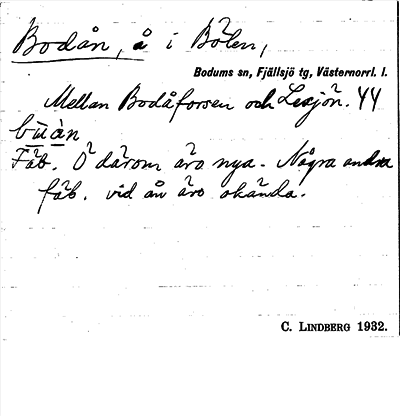 Bodån, å i Bölen,
Bodums sn, Fjällsjö tg, Västernorrl. l.
Mellan Bodåforsen och Lesjön. 44
būàn
Fäb. Ö därom äro nya. Några andra
fäb. vid ån äro okända.
C. LINDBERG 1932.